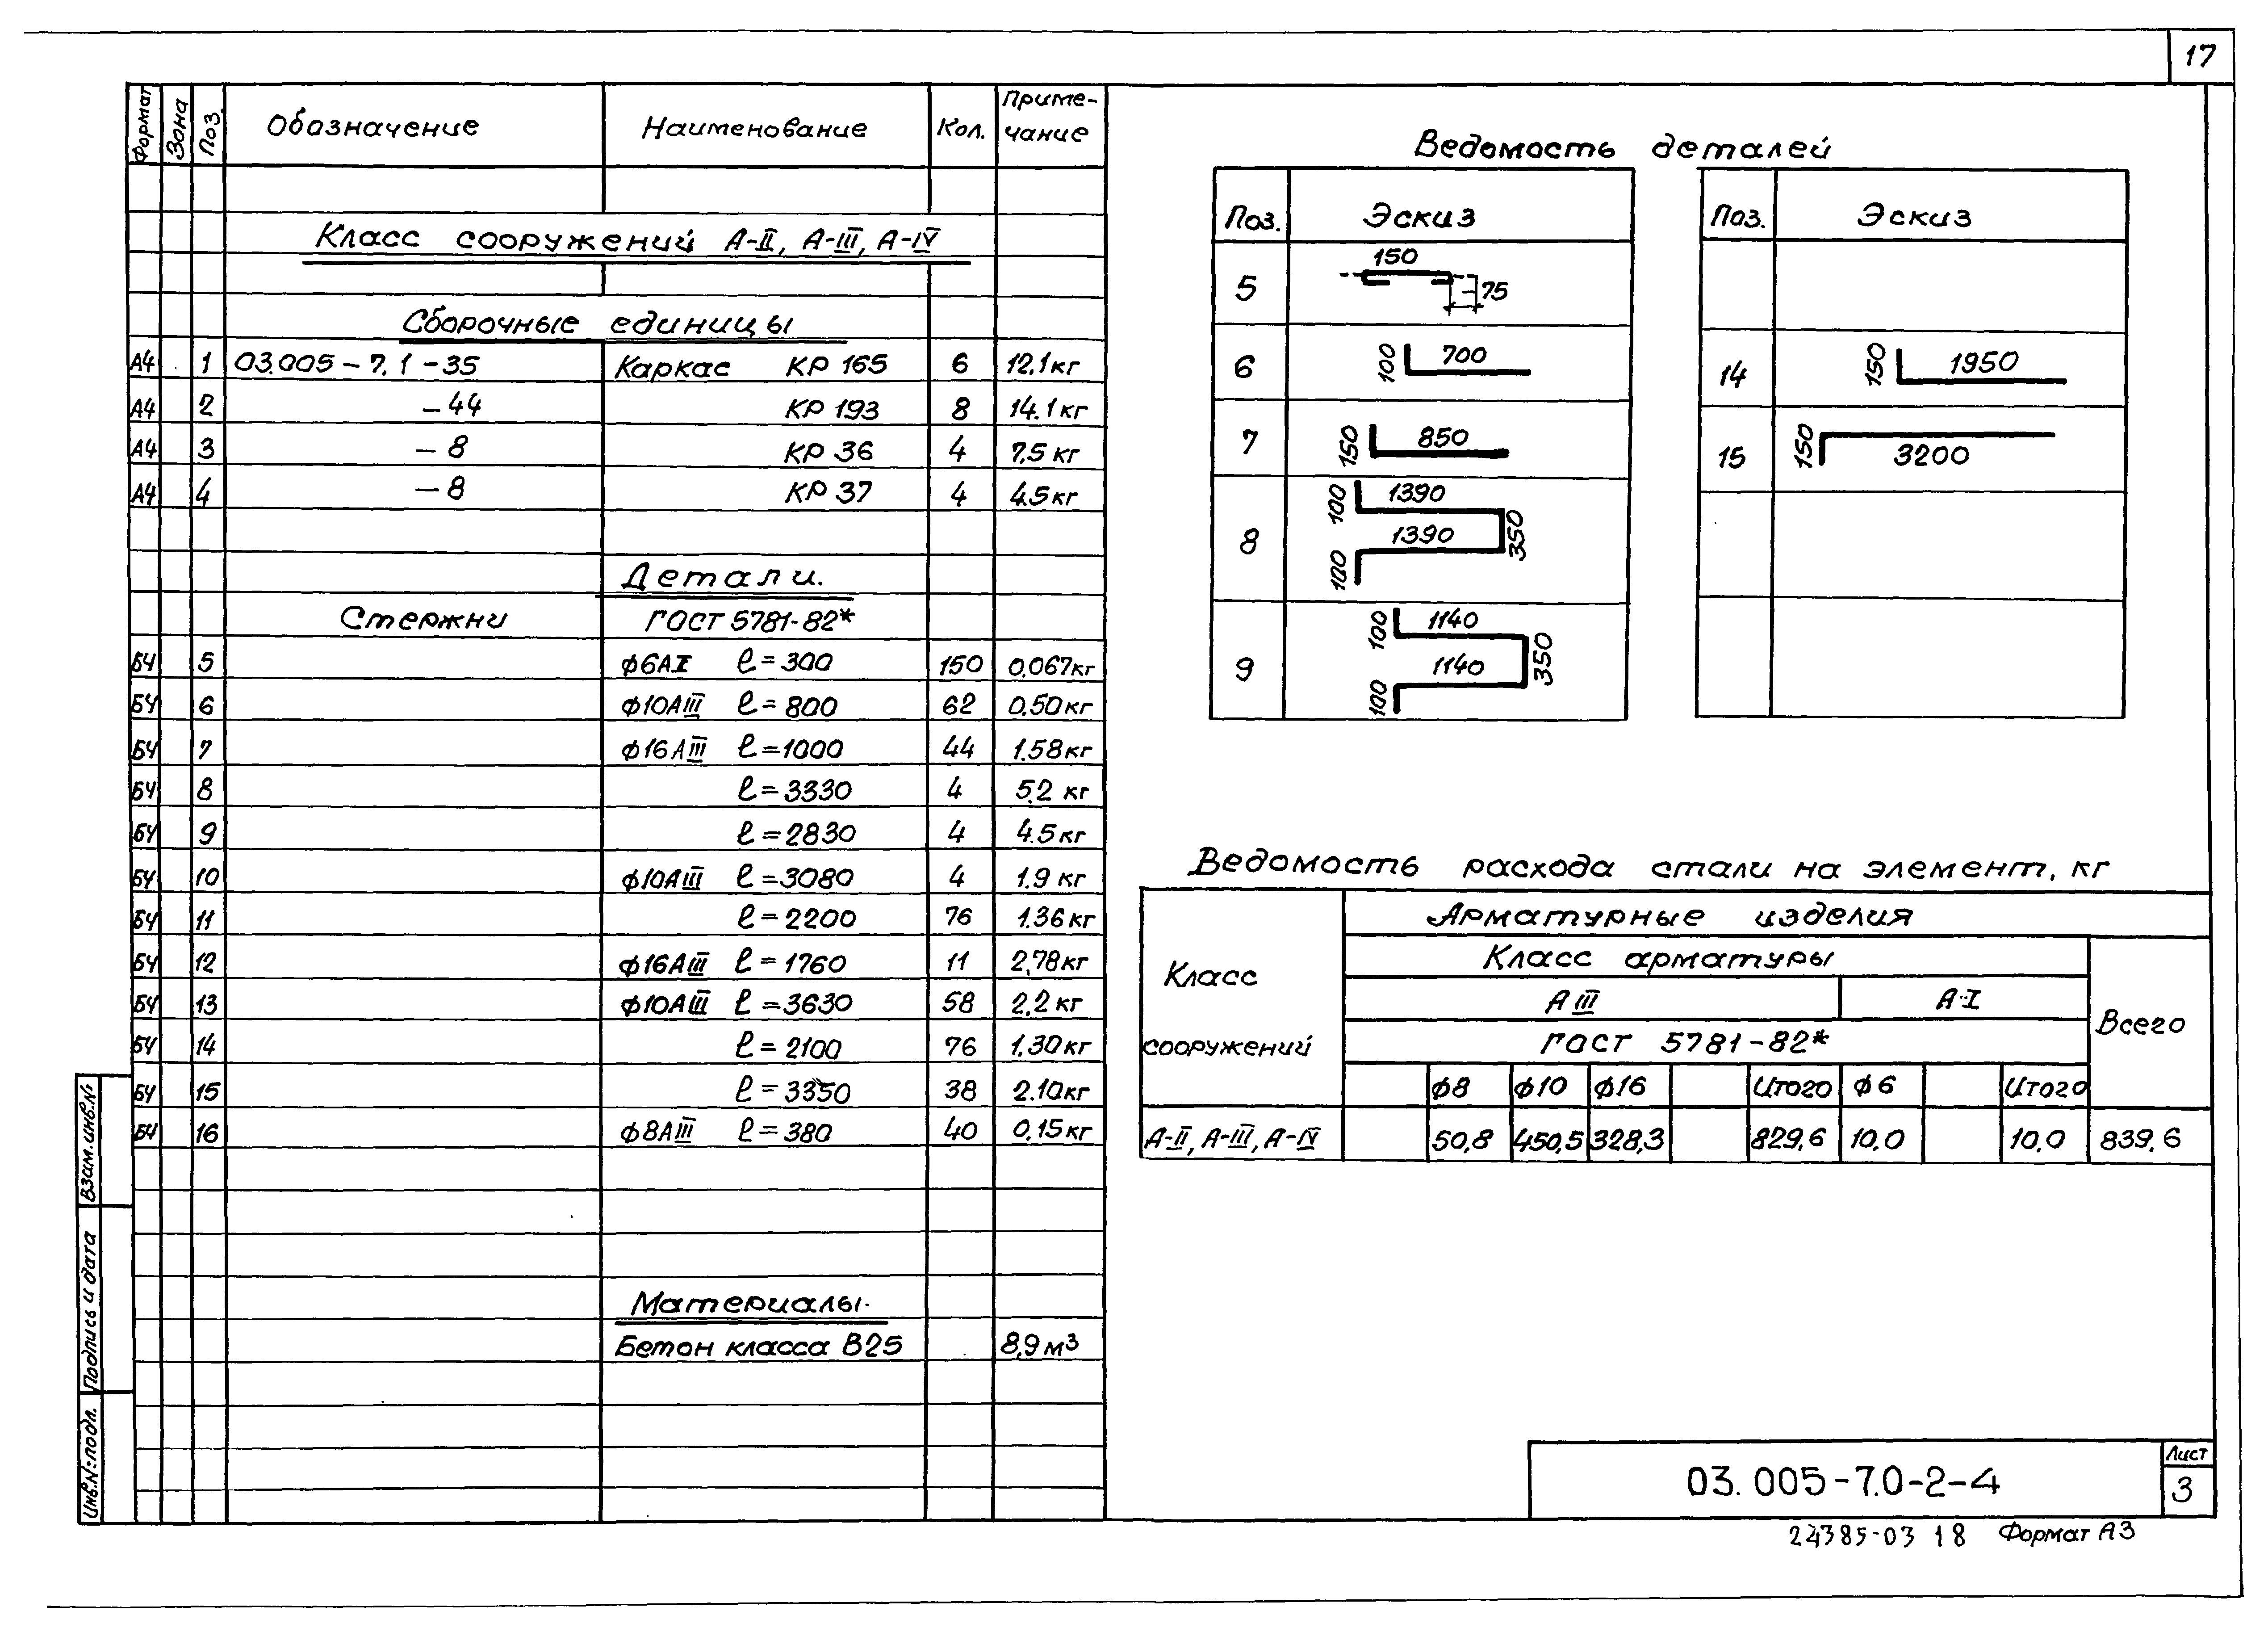 17
Формат Зона Поз. Обозначение Наименование Кол. Приме-
чание
Класс сооружений А-II, А-III, А-IV
Сборочные единицы
А4 1 03.005-7.1-35 Каркас КР 165 6 12,1кг
А4 2 -44 КР 193 8 14.1кг
А4 3 -8 КР 36 4 7,5 кг
А4 4 -8 КР 37 4 4,5кг
Детали.
Стержни ГОСТ 5781-82*
БЧ 5 ф6АI ℓ=300 150 0,067кг
БЧ 6 ф10АIII ℓ=800 62 0,50кг
БЧ 7 ф16АIII ℓ=1000 44 1.58кг
БЧ 8 ℓ=3330 4 5,2 кг
БЧ 9 ℓ=2830 4 4.5кг
БЧ 10 ф10АIII ℓ=3080 4 1.9 кг
БЧ 11 ℓ=2200 76 1.36кг
БЧ 12 ф16АIII ℓ=1760 11 2,78кг
БЧ 13 ф10АIII ℓ=3630 58 2,2кг
БЧ 14 ℓ=2100 76 1,30кг
БЧ 15 ℓ=3350 38 2.10кг
БЧ 16 ф8АIII ℓ=380 40 0,15кг
Материалы.
Бетон класса В25 8,9м³
Взам.инв.№
Подпись и дата
Инв.№подл.
Ведомость деталей
Поз. Эскиз
5 150 75
6 100 700
7 150 850
8 100 1390 1390 100 350
9 100 1140 1140 100 350
Поз. Эскиз
14 150 1950
15 150 3200
Ведомость расхода стали на элемент, кг
Класс
сооружений
Арматурные изделия
Класс арматуры
АIII А-I
ГОСТ 5781-82*
Всего
ф8 ф10 ф16 Итого ф6 Итого
А-II, А-III, А-IV 50,8 450,5 328,3 829,6 10,0 10,0 839,6
03.005-7.0-2-4
Лист
3
24385-03 18 Формат А3